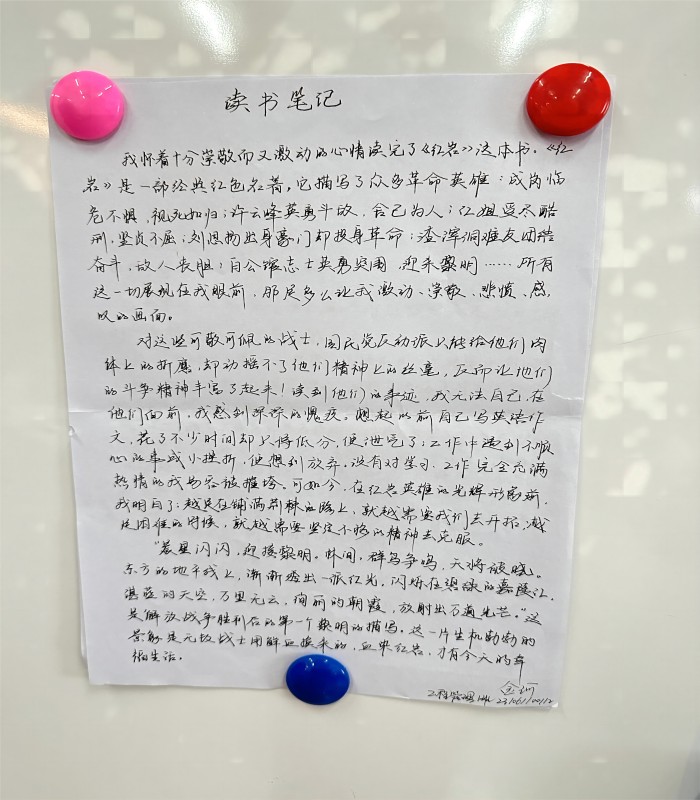 读书笔记
我怀着十分崇敬而又激动的心情读完了《红岩》这本书。《红
岩》是一部经典红色名著。它描写了众多革命英雄：成岗临
危不惧，视死如归；许云峰英勇斗敌，舍己为人；江姐受尽酷
刑，坚贞不屈；刘思扬出身豪门却投身革命；渣滓洞难友团结
奋斗，敌人丧胆；白公馆志士英勇突围，迎来黎明……所有
这一切展现在我眼前，那是多么让我激动、崇敬、悲愤、感
叹的画面。
对这些可敬可佩的战士，国民党反动派只能给他们肉
体上的折磨，却动摇不了他们精神上的丝毫，反而让他们
的斗争精神丰富了起来！读到他们的事迹，我无法自已，在
他们面前，我感到深深的愧疚。想起以前自己写英语作
文，花了不少时间却只得低分，便泄完了；工作中遇到不顺
心的事或小挫折，便想到放弃。没有对学习、工作完全充满
热情的我易容被摧垮。可如今，在红岩英雄的光辉形象前，
我明白了：越是在铺满荆棘的路上，就越需要我们去开拓，越
是困难的时候，就越需要坚定不移的精神去克服。
“晨星闪闪，迎接黎明。林间，群鸟争鸣，天将破晓。
东方的地平线上，渐渐透出一派红光，闪烁在碧绿的嘉陵江，
湛蓝的天空，万里无云，绚丽的朝霞，放射出万道光芒。”这
是解放战争胜利后的第一个黎明的描写。这一片生机勃勃的
景象是无数战士用鲜血换来的，血染红岩，才有今天的幸
福生活。
工程管理